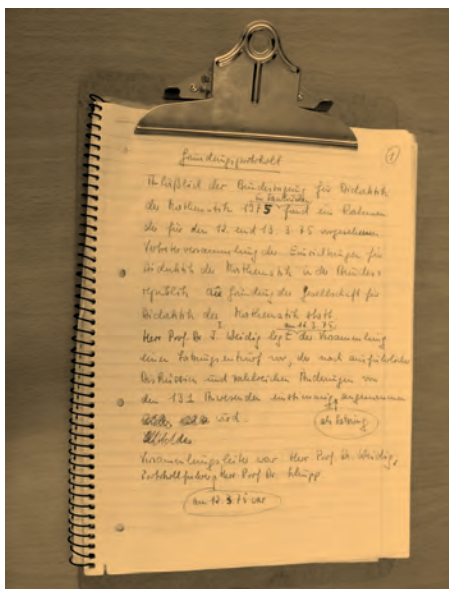 Gründungsprotokoll
1
Anläßlich der Bundestagung für Didaktik
in Saarbrücken
der Mathematik 1975 fand im Rahmen
der für den 12. und 13. 3. 75 vorgesehenen
Vertreterversammlung der Einrichtungen für
Didaktik der Mathematik in der Bundes-
republik die Gründung der Gesellschaft für
Didaktik der Mathematik statt.
am 12.3.75
Herr Prof. Dr. I. Weidig legt der Versammlung
einen Satzungsentwurf vor, der nach ausführlicher
Diskussion und zahlreichen Änderungen von
den 131 Anwesenden einstimmig angenommen
wird.
als Satzung
Versammlungsleiter war Herr Prof. Dr. Weidig,
Protokollführer Herr Prof. Dr.
am 12.3.75